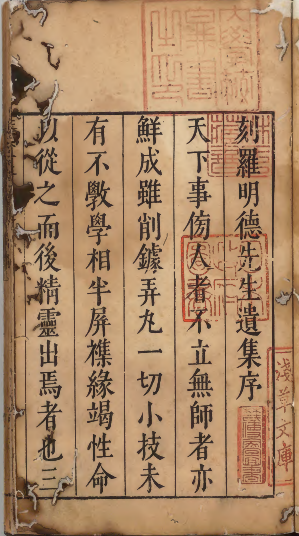 刻羅明德先生遺集序
天下事倚人者不立無師者亦
鮮成雖削鐻弄丸一切小技未
有不斅學相半屏襍緣竭性命
以從之而後精靈出焉者也三
淺草文庫